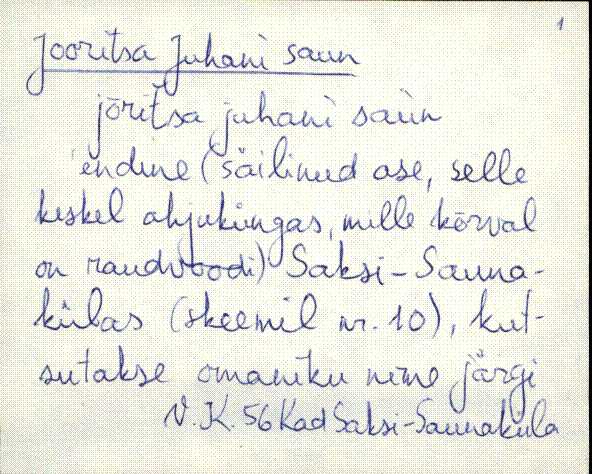 1
Jooritsa Juhani saun
jōritsa juhani saùn
endine (säilinud ase, selle
keskel ahjuküngas, mille kõrval
on raudvoodi) Saksi-Sauna-
külas (skeemil nr. 10), kut-
sutakse omaniku nime järgi
V. K. 56 Kad Saksi-Saunaküla